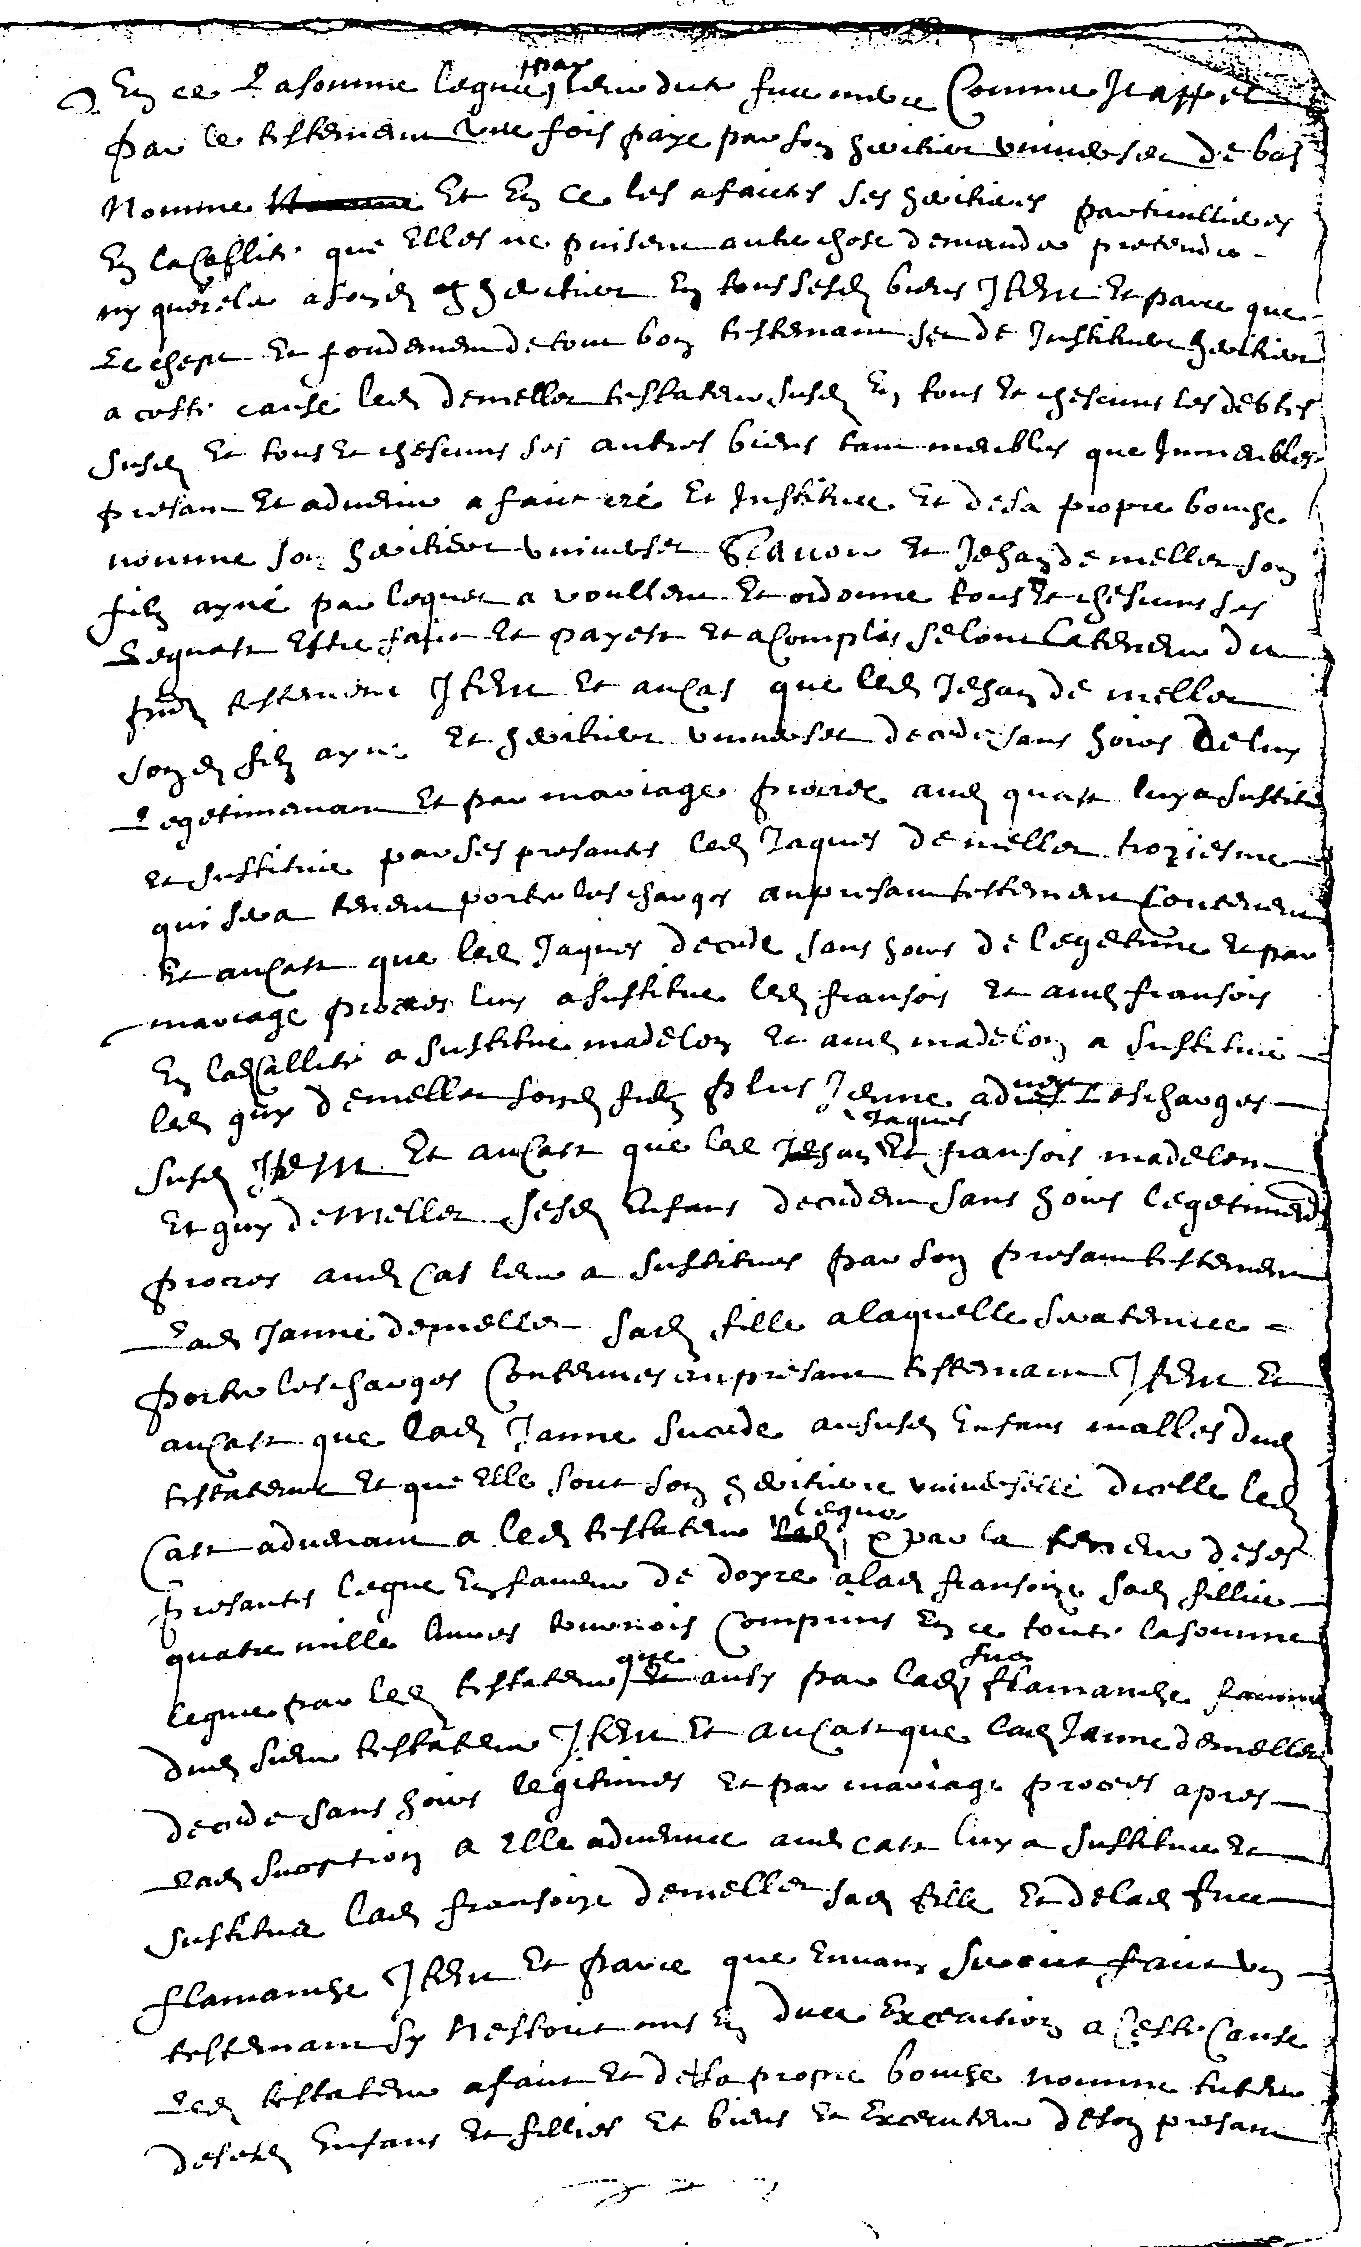 En ce la somme legue par leurdicte feue mere comme il appert
par le testement une fois paye par son heritier universel de bas
nomme et en ce les a faictes ses heritieres particullieres
en la callite que elles ne puisent autre chose demander pretendre
ny quereler a sond heritier en tous sesd biens Item et parce que
le chept et fondemen de tout bon testemant set de Instituer heritier
a ceste cause led de meller testateur susd en tous et chescuns les debtes
susd et tous et chescuns ses autres biens tant meubles que Immeubles
presant et advenir a faict cré et Institue et de sa propre bouche
nomme son heritier universel scavoir et Jehan de mellet son
filz ayné par lequel a voulleu et ordonne tous et chescuns ses
legatz estre faict et payest et acomplis selont la teneur du
pnt testement Item et au cas que led Jehan de mellet
sond filz ayne et heritier universel decede sans hoirs de luy
legetimemant et par mariage procree aud quast luy a sustitue
et sustitue par ses presantes led Jaques de mellet troziesme
qui sera teneu porter les charges au presant testement conteneu
et au cast que led Jaques decede sans hoirs de legetime et par
mariage procrees luy a sustitue led fransois et aud fransois
en lad callite a sustitue madelon et aud madelon a sustitue
led guy de mellet sond filz plus Jeune aduec les charges
susd Item et au cast que led Jaques et fransois madelon
et guy de mellet sesd enfans decedent sans hoirs legetimemt
procres aud cas leur a sustitues par son presant testement
lad Janne de mellet sad fille a laquelle sera tenue
porter les charges contenues au presant testemant Item et
au cast que lad Janne sucede au susd enfans malles dud
testateur et que elle soit son heritiere universelle dicelle led
cast advenant a led testateur legue par la teneur de ses
presantes legue en faveur de doyre a lad fransoize sad fillie
quatre mille livres tournois comprins en ce toute la somme
legue par led testateur que ausy par lad feue flamanche famme
dud sieur testateur Item et au cast que lad Janne de mellet
decede sans hoirs legitimes et par mariage procrees apres
lad sucetion a elle advenue aud cast luy a sustitue et
sustitue lad fransoize de mellet sad fille et de lad feue
flamanche Item et parce que en vain seroict faict un
testemant sy nestoict mis en deue execution a ceste cause
led testateur a faict et de sa propre bouche nomme tuteur
de sesd enfans et fillies et biens et executeur de son presant